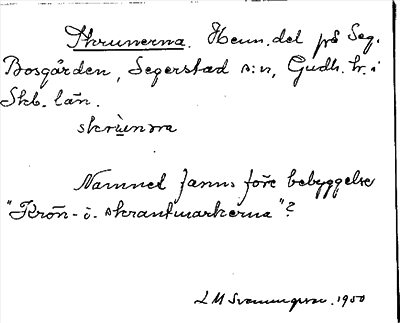 Skrunerna. Hemn. del på Seg.
Bosgården, Segerstad s:n, Gudh. hr. i
Skb. län.
skrùnṇa
Namnet fanns före bebyggelse
"Krön- i. skrantmarkerna"?
L M Svenungsson. 1950